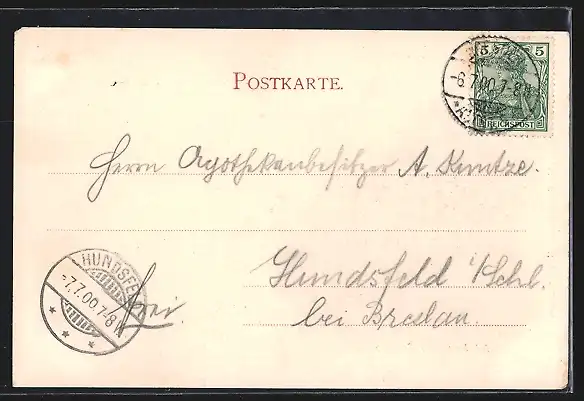 POSTKARTE.
5 5
REICHSPOST
6.7.00.7-8
Herrn Apothekenbesitzer A. Kuntze.
Hundsfeld i/Schl.
bei Breslau
frei.
HUNDSFE
-7.7.00.7-8